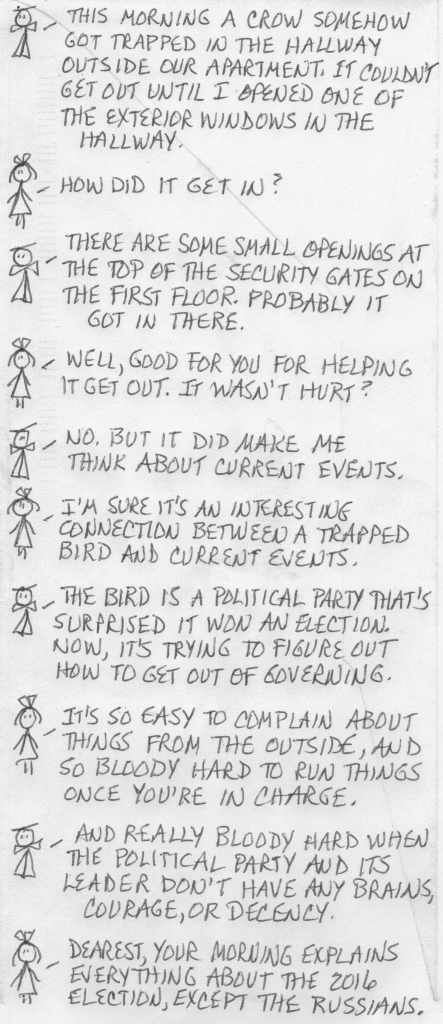 THIS MORNING A CROW SOMEHOW
GOT TRAPPED IN THE HALLWAY
OUTSIDE OUR APARTMENT. IT COULDN'T
GET OUT UNTIL I OPENED ONE OF
THE EXTERIOR WINDOWS IN THE
HALLWAY.
HOW DID IT GET IN?
THERE ARE SOME SMALL OPENINGS AT
THE TOP OF THE SECURITY GATES ON
THE FIRST FLOOR. PROBABLY IT
GOT IN THERE.
WELL, GOOD FOR YOU FOR HELPING
IT GET OUT. IT WASN'T HURT?
NO. BUT IT DID MAKE ME
THINK ABOUT CURRENT EVENTS.
I'M SURE IT'S AN INTERESTING
CONNECTION BETWEEN A TRAPPED
BIRD AND CURRENT EVENTS.
THE BIRD IS A POLITICAL PARTY THAT'S
SURPRISED IT WON AN ELECTION.
NOW, IT'S TRYING TO FIGURE OUT
HOW TO GET OUT OF GOVERNING.
IT'S SO EASY TO COMPLAIN ABOUT
THINGS FROM THE OUTSIDE, AND
SO BLOODY HARD TO RUN THINGS
ONCE YOU'RE IN CHARGE.
AND REALLY BLOODY HARD WHEN
THE POLITICAL PARTY AND ITS
LEADER DON'T HAVE ANY BRAINS,
COURAGE, OR DECENCY.
DEAREST, YOUR MORNING EXPLAINS
EVERYTHING ABOUT THE 2016
ELECTION, EXCEPT THE RUSSIANS.